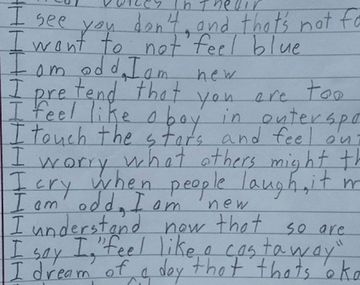 voices in the air
I see you don't, and that's not
I want to not feel blue
I am odd, I am new
I pretend that you are too
I feel like a boy in outerspa
I touch the stars and feel out
I worry what others might th
I cry when people laugh, it m
I am odd, I am new
I understand now that so are
I say I, "feel like a castaway"
I dream of a day that thats oka